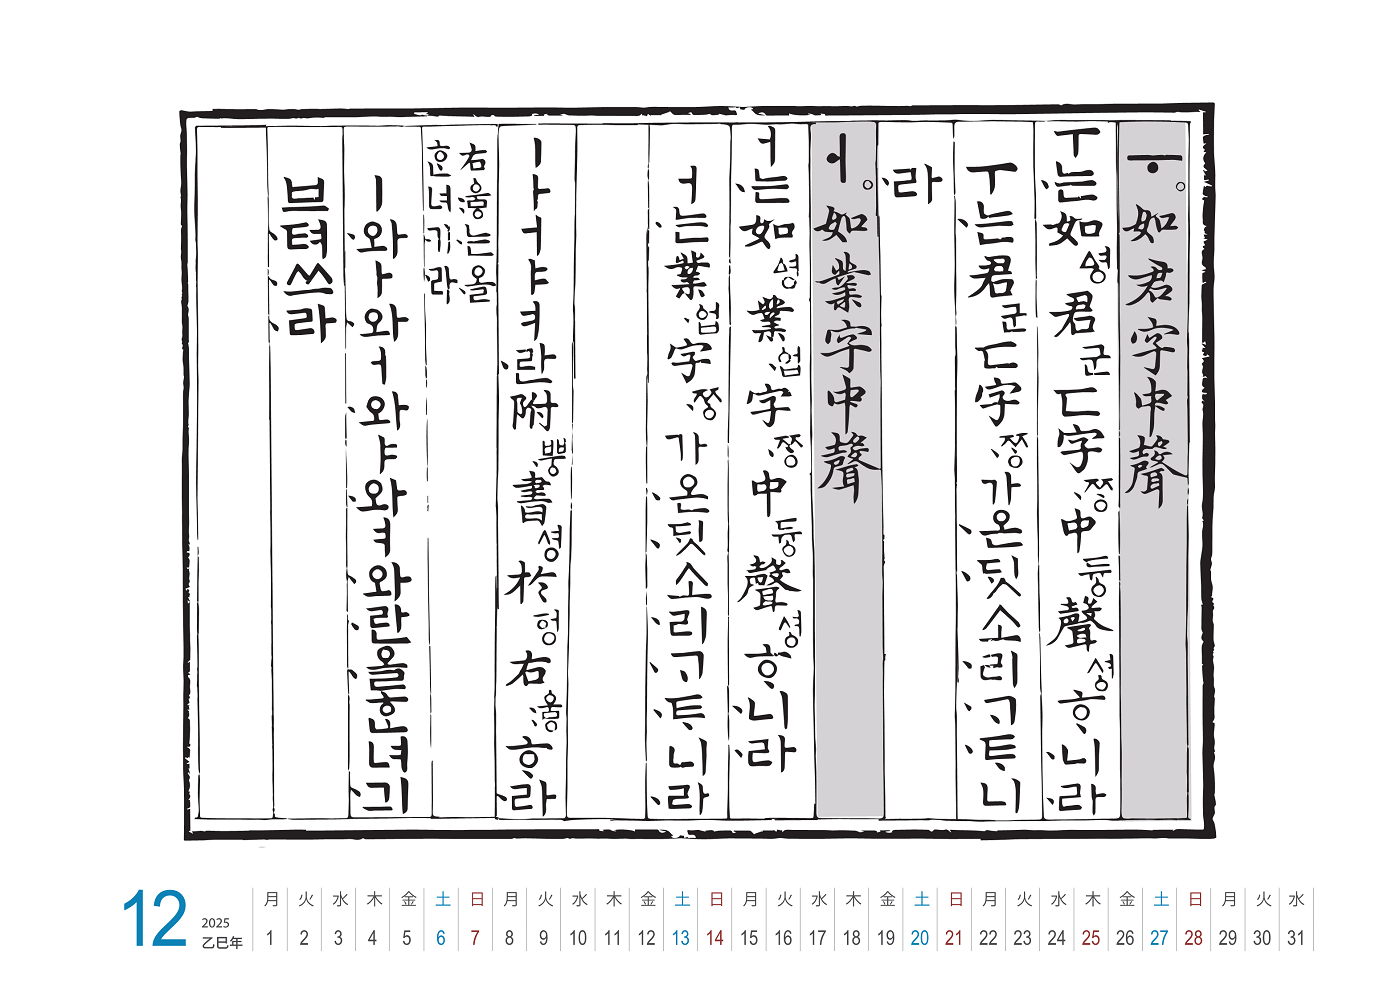 ㅜ。如君字中聲
ㅜ는如ᅀᅧᆼ君군ㄷ字ᄍᆞᆼ中듀ᇰ聲셔ᇰᄒᆞ니라
ㅜ는君군ㄷ字ᄍᆞᆼ가온ᄃᆡᆺ소리ᄀᆞᄐᆞ니
라
ㅓ。如業字中聲
ㅓ는如ᅀᅧᆼ業업字ᄍᆞᆼ中듀ᇰ聲셔ᇰᄒᆞ니라
ㅓ는業업字ᄍᆞᆼ가온ᄃᆡᆺ소리ᄀᆞᄐᆞ니라
ㅣㅏㅓㅑㅕ란附뿌ᇰ書셔ᇰ於허ᇰ右우ᇢᄒᆞ라
右우ᇢ는올
ᄒᆞᆫ녀기라
ㅣ와ㅏ와ㅓ와ㅑ와ㅕ와란올ᄒᆞᆫ녀긔
브텨쓰라
12 2025 乙巳年
月 火 水 木 金 土 日 月 火 水 木 金 土 日 月 火 水 木 金 土 日 月 火 水 木 金 土 日 月 火 水
1 2 3 4 5 6 7 8 9 10 11 12 13 14 15 16 17 18 19 20 21 22 23 24 25 26 27 28 29 30 31